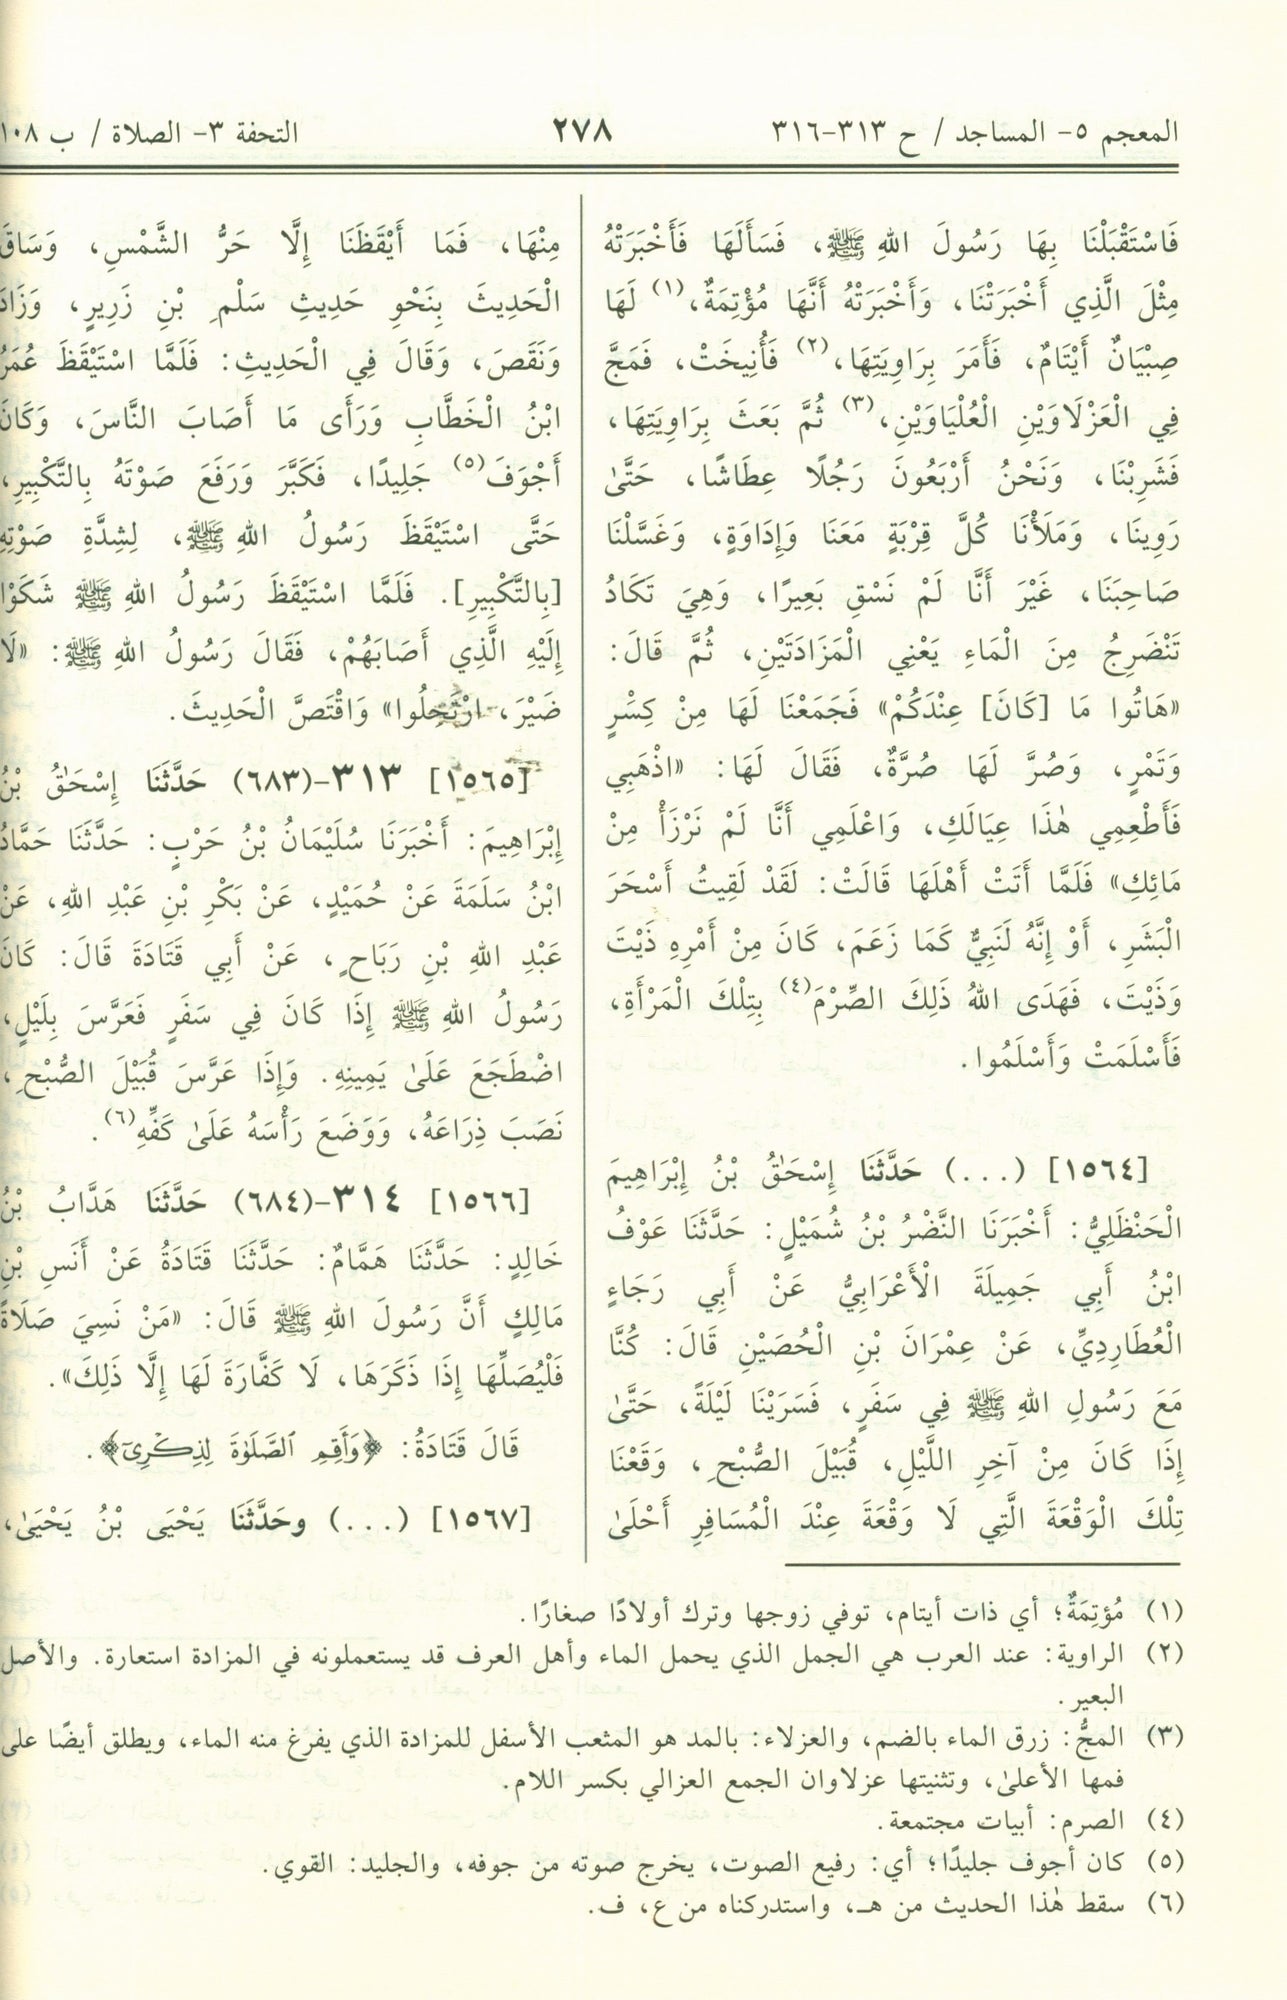 المعجم ٥- المساجد / ح ٣١٣-٣١٦
٢٧٨
التحفة ٣- الصلاة / ب ١٠٨
فَاسْتَقْبَلْنَا بِهَا رَسُولَ اللهِ ﷺ، فَسَأَلَهَا فَأَخْبَرَتْهُ
مِثْلَ الَّذِي أَخْبَرَتْنَا، وَأَخْبَرَتْهُ أَنَّهَا مُؤْتِمَةٌ،(١) لَهَا
صِبْيَانٌ أَيْتَامٌ، فَأَمَرَ بِرَاوِيَتِهَا،(٢) فَأُنِيخَتْ، فَمَجَّ
فِي الْعَزْلَاوَيْنِ الْعُلْيَاوَيْنِ،(٣) ثُمَّ بَعَثَ بِرَاوِيَتِهَا،
فَشَرِبْنَا، وَنَحْنُ أَرْبَعُونَ رَجُلًا عِطَاشًا، حَتَّىٰ
رَوِينَا، وَمَلَأْنَا كُلَّ قِرْبَةٍ مَعَنَا وَإِدَاوَةٍ، وَغَسَّلْنَا
صَاحِبَنَا، غَيْرَ أَنَّا لَمْ نَسْقِ بَعِيرًا، وَهِيَ تَكَادُ
تَنْضَرِجُ مِنَ الْمَاءِ يَعْنِي الْمَزَادَتَيْنِ، ثُمَّ قَالَ:
«هَاتُوا مَا [كَانَ] عِنْدَكُمْ» فَجَمَعْنَا لَهَا مِنْ كِسَرٍ
وَتَمْرٍ، وَصُرَّ لَهَا صُرَّةٌ، فَقَالَ لَهَا: «اذْهَبِي
فَأَطْعِمِي هٰذَا عِيَالَكِ، وَاعْلَمِي أَنَّا لَمْ نَرْزَأْ مِنْ
مَائِكِ» فَلَمَّا أَتَتْ أَهْلَهَا قَالَتْ: لَقَدْ لَقِيتُ أَسْحَرَ
الْبَشَرِ، أَوْ إِنَّهُ لَنَبِيٌّ كَمَا زَعَمَ، كَانَ مِنْ أَمْرِهِ ذَيْتَ
وَذَيْتَ، فَهَدَى اللهُ ذَلِكَ الصِّرْمَ(٤) بِتِلْكَ الْمَرْأَةِ،
فَأَسْلَمَتْ وَأَسْلَمُوا.
[١٥٦٤] (...) حَدَّثَنَا إِسْحَاقُ بْنُ إِبْرَاهِيمَ
الْحَنْظَلِيُّ: أَخْبَرَنَا النَّضْرُ بْنُ شُمَيْلٍ: حَدَّثَنَا عَوْفُ
ابْنُ أَبِي جَمِيلَةَ الْأَعْرَابِيُّ عَنْ أَبِي رَجَاءٍ
الْعُطَارِدِيِّ، عَنْ عِمْرَانَ بْنِ الْحُصَيْنِ قَالَ: كُنَّا
مَعَ رَسُولِ اللهِ ﷺ فِي سَفَرٍ، فَسَرَيْنَا لَيْلَةً، حَتَّىٰ
إِذَا كَانَ مِنْ آخِرِ اللَّيْلِ، قُبَيْلَ الصُّبْحِ، وَقَعْنَا
تِلْكَ الْوَقْعَةَ الَّتِي لَا وَقْعَةَ عِنْدَ الْمُسَافِرِ أَحْلَىٰ
مِنْهَا، فَمَا أَيْقَظَنَا إِلَّا حَرُّ الشَّمْسِ، وَسَاقَ
الْحَدِيثَ بِنَحْوِ حَدِيثِ سَلْمِ بْنِ زَرِيرٍ، وَزَادَ
وَنَقَصَ، وَقَالَ فِي الْحَدِيثِ: فَلَمَّا اسْتَيْقَظَ عُمَرُ
ابْنُ الْخَطَّابِ وَرَأَى مَا أَصَابَ النَّاسَ، وَكَانَ
أَجْوَفَ(٥) جَلِيدًا، فَكَبَّرَ وَرَفَعَ صَوْتَهُ بِالتَّكْبِيرِ،
حَتَّى اسْتَيْقَظَ رَسُولُ اللهِ ﷺ، لِشِدَّةِ صَوْتِهِ
[بِالتَّكْبِيرِ]. فَلَمَّا اسْتَيْقَظَ رَسُولُ اللهِ ﷺ شَكَوْا
إِلَيْهِ الَّذِي أَصَابَهُمْ، فَقَالَ رَسُولُ اللهِ ﷺ: «لَا
ضَيْرَ، ارْتَحِلُوا» وَاقْتَصَّ الْحَدِيثَ.
[١٥٦٥] ٣١٣-(٦٨٣) حَدَّثَنَا إِسْحَٰقُ بْنُ
إِبْرَاهِيمَ: أَخْبَرَنَا سُلَيْمَانُ بْنُ حَرْبٍ: حَدَّثَنَا حَمَّادُ
ابْنُ سَلَمَةَ عَنْ حُمَيْدٍ، عَنْ بَكْرِ بْنِ عَبْدِ اللهِ، عَنْ
عَبْدِ اللهِ بْنِ رَبَاحٍ، عَنْ أَبِي قَتَادَةَ قَالَ: كَانَ
رَسُولُ اللهِ ﷺ إِذَا كَانَ فِي سَفَرٍ فَعَرَّسَ بِلَيْلٍ،
اضْطَجَعَ عَلَىٰ يَمِينِهِ. وَإِذَا عَرَّسَ قُبَيْلَ الصُّبْحِ،
نَصَبَ ذِرَاعَهُ، وَوَضَعَ رَأْسَهُ عَلَىٰ كَفِّهِ(٦).
[١٥٦٦] ٣١٤-(٦٨٤) حَدَّثَنَا هَدَّابُ بْنُ
خَالِدٍ: حَدَّثَنَا هَمَّامٌ: حَدَّثَنَا قَتَادَةُ عَنْ أَنَسِ بْنِ
مَالِكٍ أَنَّ رَسُولَ اللهِ ﷺ قَالَ: «مَنْ نَسِيَ صَلَاةً
فَلْيُصَلِّهَا إِذَا ذَكَرَهَا، لَا كَفَّارَةَ لَهَا إِلَّا ذَلِكَ».
قَالَ قَتَادَةُ: ﴿وَأَقِمِ ٱلصَّلَوٰةَ لِذِكْرِىٓ﴾.
[١٥٦٧] (...) وحَدَّثَنَا يَحْيَى بْنُ يَحْيَىٰ،
(١) مُؤتِمَةٌ؛ أي ذات أيتام، توفي زوجها وترك أولادًا صغارًا.
(٢) الراوية: عند العرب هي الجمل الذي يحمل الماء وأهل العرف قد يستعملونه في المزادة استعارة. والأصل
البعير.
(٣) المجُّ: زرق الماء بالضم، والعزلاء: بالمد هو المثعب الأسفل للمزادة الذي يفرغ منه الماء، ويطلق أيضًا على
فمها الأعلىٰ، وتثنيتها عزلاوان الجمع العزالي بكسر اللام.
(٤) الصرم: أبيات مجتمعة.
(٥) كان أجوف جليدًا؛ أي: رفيع الصوت، يخرج صوته من جوفه، والجليد: القوي.
(٦) سقط هٰذا الحديث من هـ، واستدركناه من ع، ف.